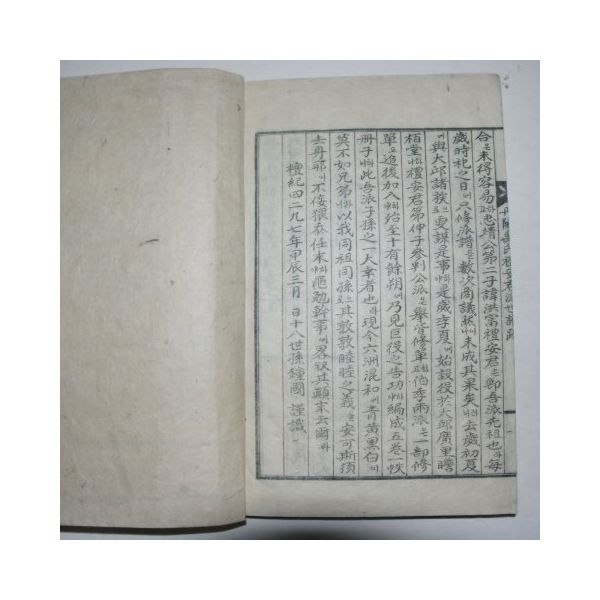 合은未得容易고忠靖公第二子諱洪富禮安君은卽吾派先祖也라每
歲時祀之日에只修派譜를數次商議然未成其果矣러니去歲初夏
에與大邱諸族으로更謀是事하야歲孝夏에始設役於大邱廣里瞻
栢堂하야禮安君第仲子參判公派는擧皆修單고伯季兩派는一部修
單으로追後加入하야始至十有餘朔에乃見巨役之告功하야編成五卷一帙
冊子하니此吾派子孫之一大幸者也라現今六洲混和에靑黃黑白이
莫不如兄弟하니以我同祖同孫으로其敦敦睦睦之義를安可斯須
去身耶아不侫猥忝任末하야黽勉幹事에畧叙其顚末云爾라
檀紀四二九七年甲辰三月 日十八世孫鍾國 謹識